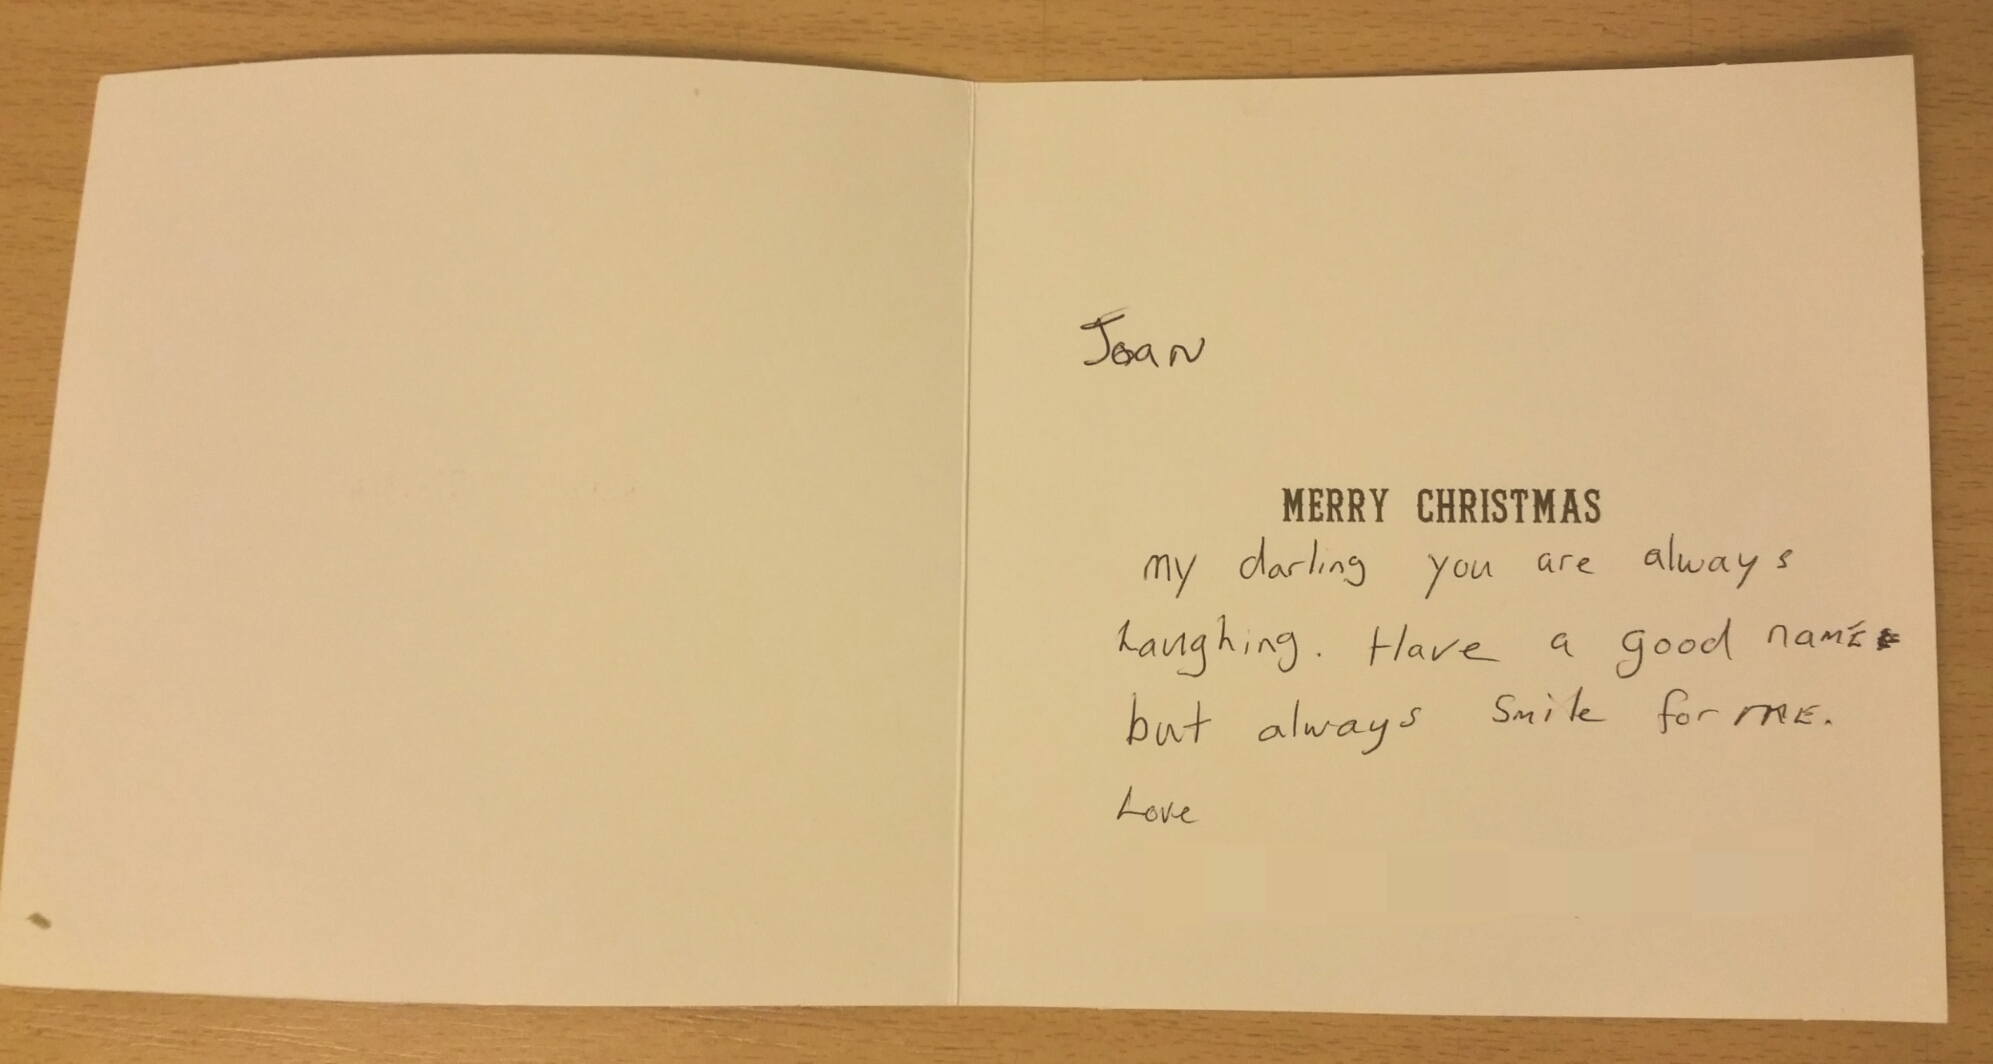 Joan
MERRY CHRISTMAS
my darling you are always
Laughing. Have a good name
but always Smile for ME.
Love